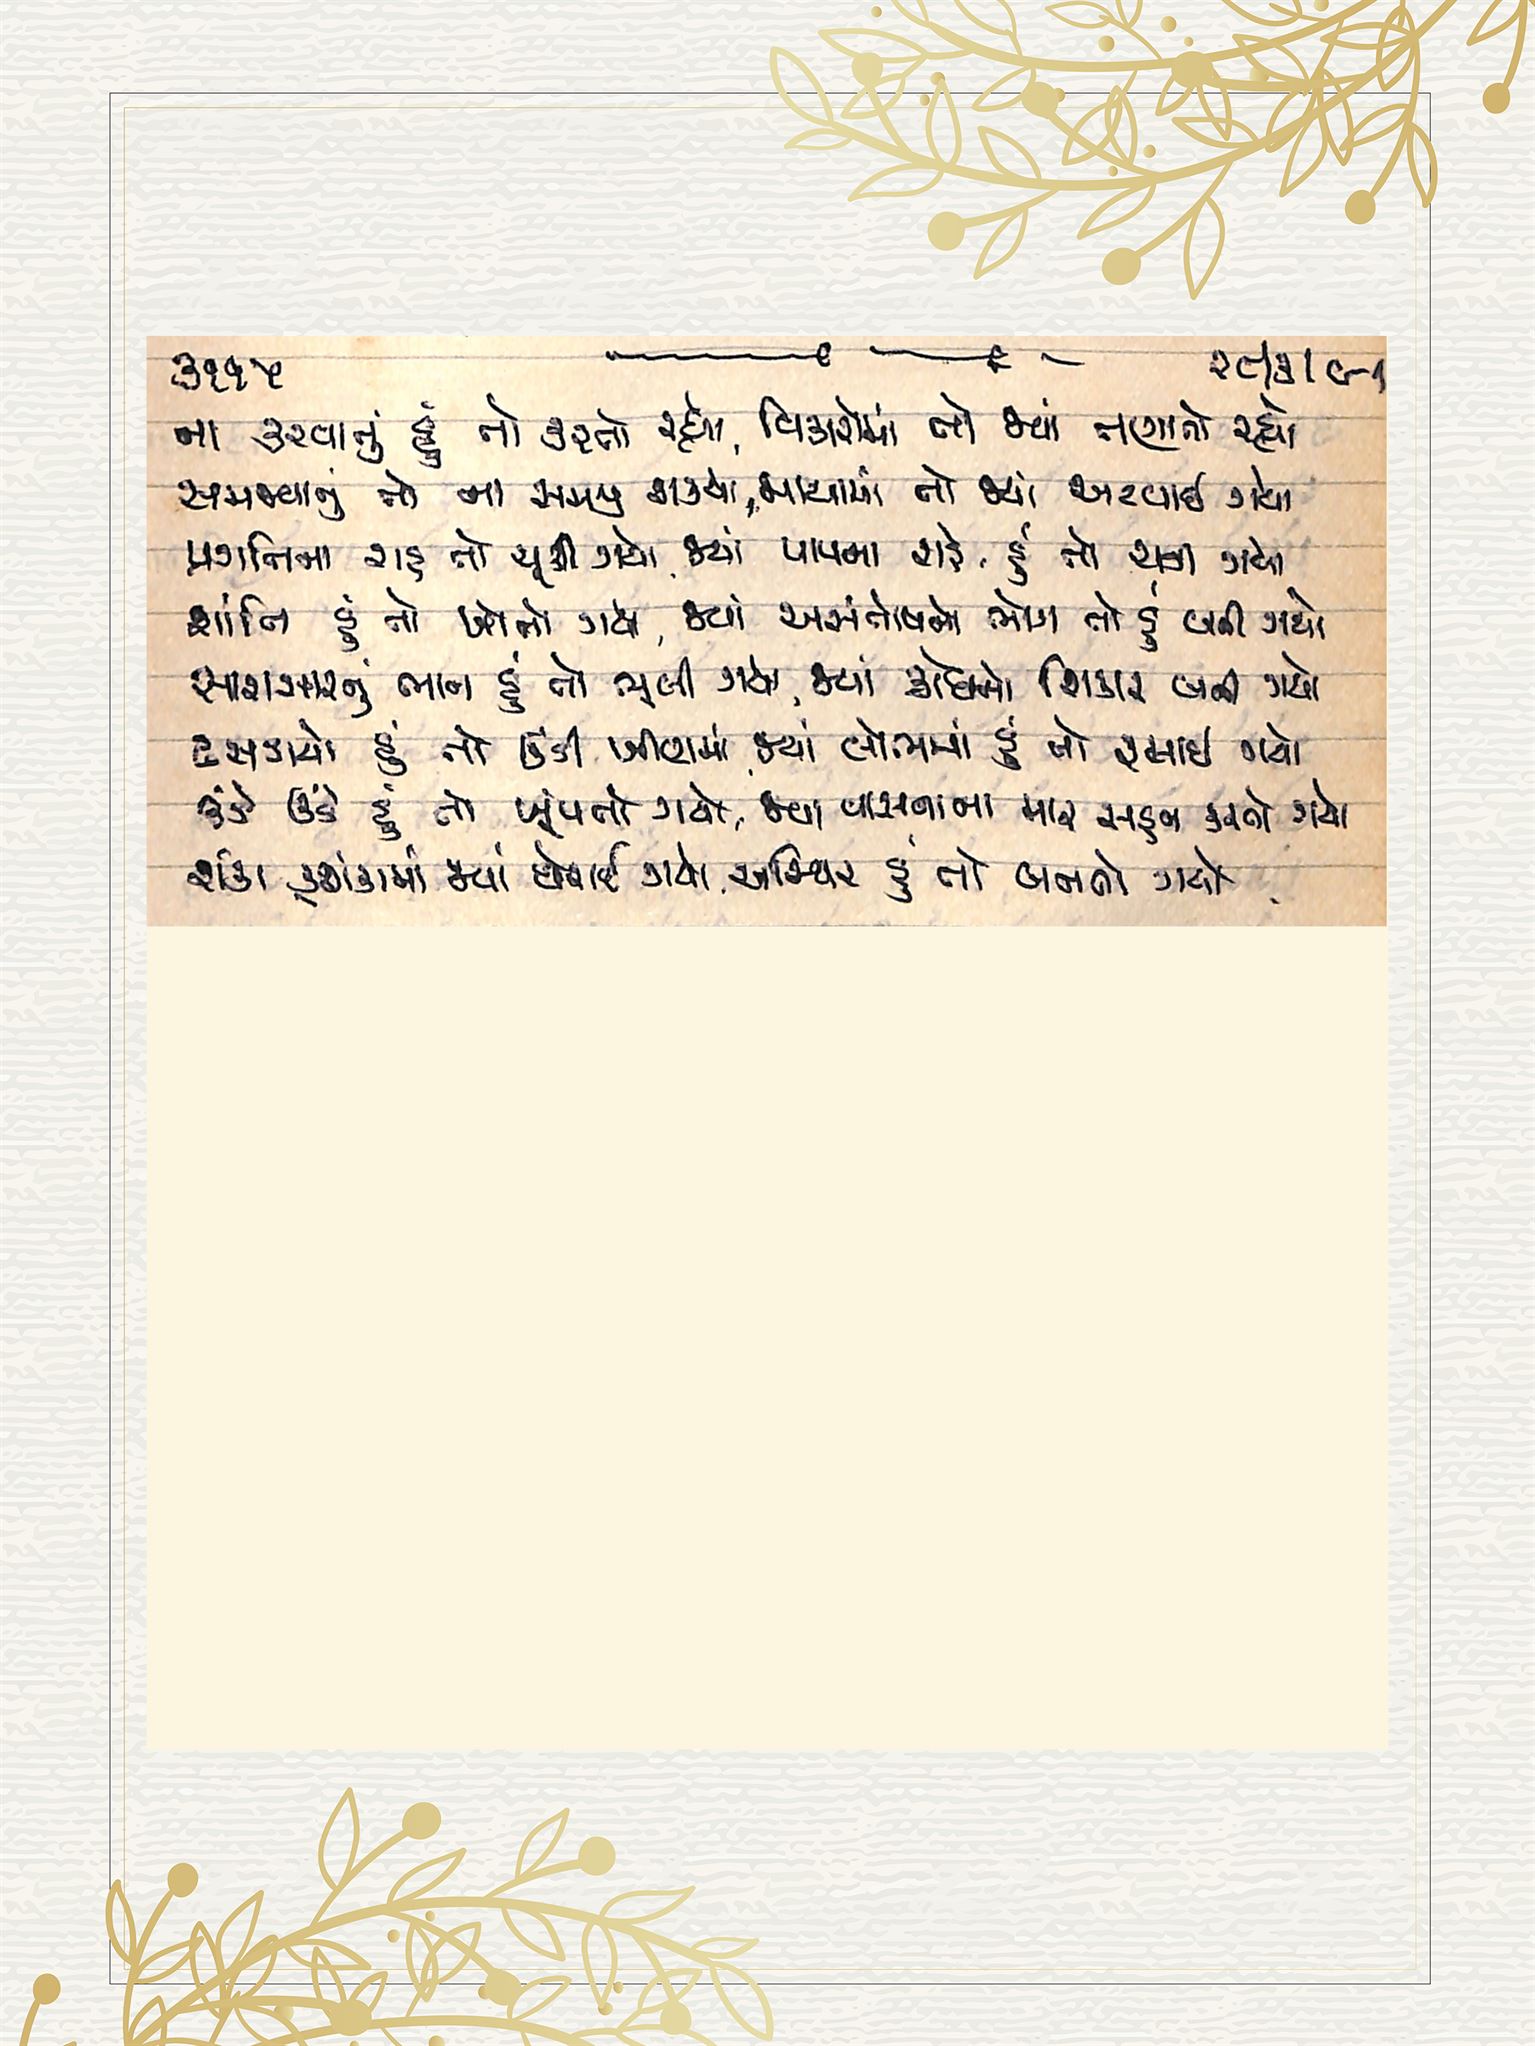 ૩૧૧૫ ૨૯/૩/૯૧
ના કરવાનું હું તો કરતો રહ્યો, વિકારોમાં તો જ્યાં તણાતો રહ્યો
સમજવાનું તો ના સમજી શક્યો, માયામાં તો જ્યાં અટવાઈ ગયો
પ્રગતિના રાહ તો ચૂકી ગયો, જ્યાં પાપના રાહે હું તો ચાલી ગયો
શાંતિ હું તો ખોતો ગયો, જ્યાં અસંતોષનો ભોગ તો હું બની ગયો
સારાસારનું ભાન હું તો ભૂલી ગયો, જ્યાં ક્રોધનો શિકાર બની ગયો
ઢસડાયો હું તો ઉંડી ખીણમાં, જ્યાં લોભમાં હું તો ફસાઈ ગયો
ઉંડે ઉંડે હું તો ખૂંપતો ગયો, જ્યાં વાસનાના માર સહન કરતો ગયો
શંકા કુશંકામાં જ્યાં ઘેરાઈ ગયો, અસ્થિર હું તો બનતો ગયો